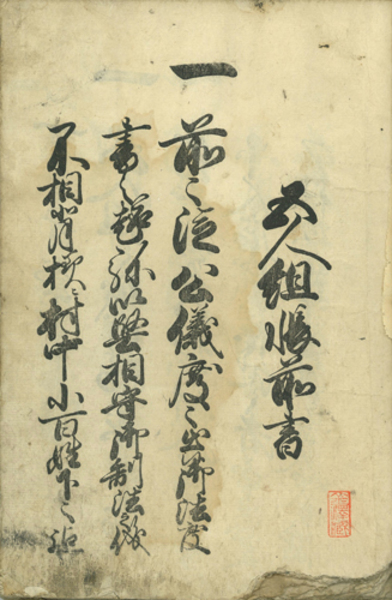 五人組帳前書
一前々従公儀度々出御法度
書之趣弥以堅相守御制法之儀
不相背様ニ村中小百姓下々迄